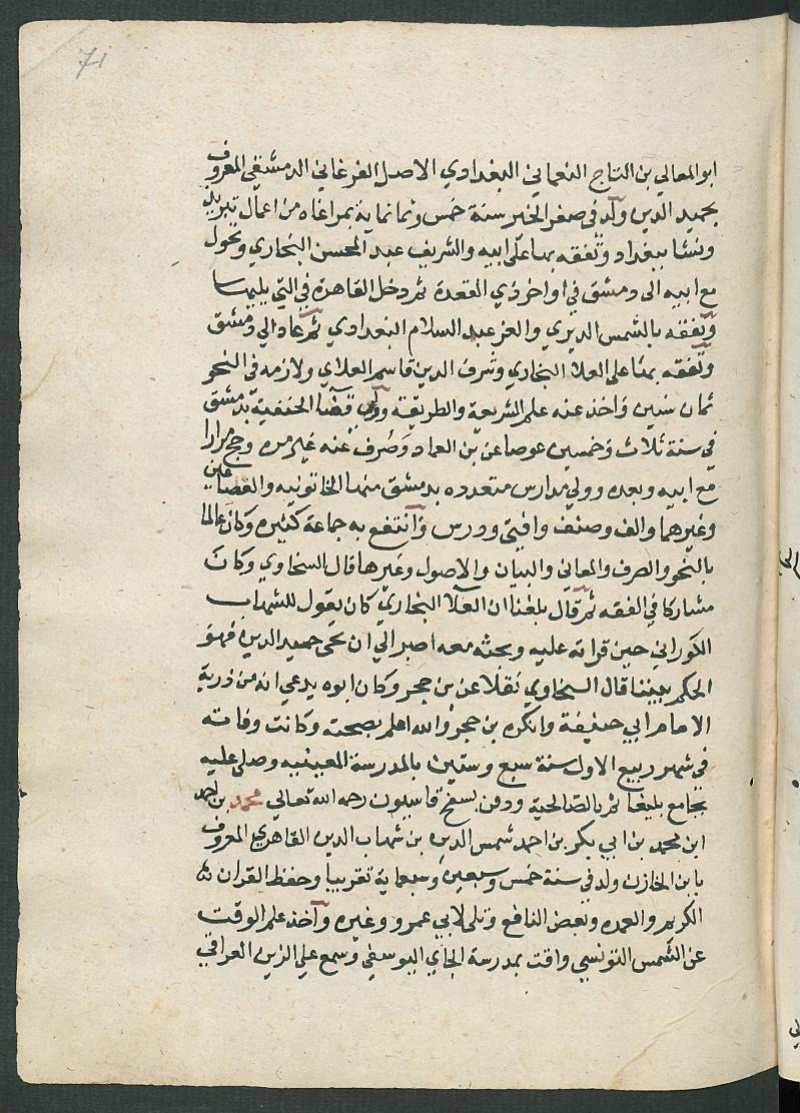 71
ابو المعالي بن التاج النعماني البغدادي الاصل الفرغاني الدمشقي المعروف
بحميد الدين ولد في صفر الخير سنة خمس وثمانماية بمراغاه من اعمال تبريز
ونشا ببغداد وتفقه بها على ابيه والشريف عبد المحسن البخاري وتحول
مع ابيه الى دمشق في اواخر ذي القعدة ثم دخل القاهرة في التي يليها
وتفقه بالشمس الديري والعز عبد السلام البغدادي ثم عاد الي دمشق
وتفقه بها على العلا البخاري وشرف الدين قاسم العلاي ولازمه في النحو
ثمان سنين واخذ عنه علم الشريعة والطريقة وولي قضا الحنفية بدمشق
في سنة ثلاث وخمسين عوضا عن بن العماد وصرف عنه غير مره وحج مرارا
مع ابيه وبعده وولي مدارس متعدده بدمشق منها الخاتونيه والقصاعين
وغيرهما والف وصنف وافتى ودرس وانتفع به جماعة كثيره وكان عالما
بالنحو والصرف والمعاني والبيان والاصول وغيرها قال السخاوي وكان
مشاركا في الفقه ثم قال بلغنا ان العلا البخاري كان يقول للشهاب
الكوراني حين قراته عليه وبحثه معه اصبر الي ان يجي حميد الدين فهو
الحكم بيننا قال السخاوي نقلا عن بن حجر وكان ابوه يدعي انه من ذرية
الامام ابي حنيفة وانكره بن حجر والله اعلم بصحته وكانت وفاته
في شهر ربيع الاول سنة سبع وستين بالمدرسة المعينيه وصلي عليه
بجامع يلبغا ثم بالصالحية ودفن بسفح قاسيون رحمه الله تعالي محمد بن احمد
ابن محمد بن ابي بكر بن احمد شمس الدين بن شهاب الدين القاهري المعروف
بابن الخازن ولد في سنة خمس وسبعين وسبعماية تقريبا وحفظ القران
الكريم والعمده وبعض النافع وتلى لابي عمرو وغيره واخذ علم الوقت
عن الشمس التونسي واقت بمدرسة الجاي اليوسفي وسمع علي الزين العراقي